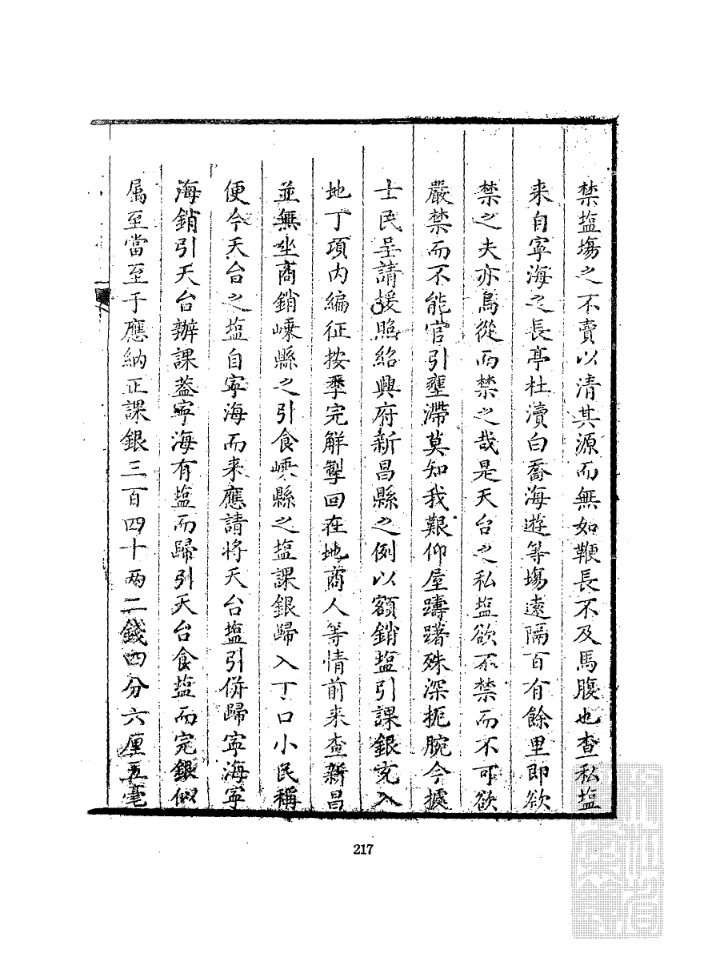 禁塩塲之不賣以清其源而無如鞭長不及馬腹也查私塩
来自寧海之長亭杜瀆白喬海遊等塲遠隔百有餘里即欲
禁之夫亦烏從而禁之哉是天台之私塩欲不禁而不可欲
嚴禁而不能官引壅滯莫知我艱仰屋躊躇殊深扼腕今據
士民呈請援照紹興府新昌縣之例以額銷塩引課銀完入
地丁項内編征按季完解掣回在地商人等情前来查新昌
並無坐商銷嵊縣之引食嵊縣之塩課銀歸入丁口小民稱
便今天台之塩自寧海而来應請将天台塩引併歸寧海寧
海銷引天台辦課葢寧海有塩而歸引天台食塩而完銀似
属至當至于應納正課銀三百四十两二錢四分六厘五毫
217